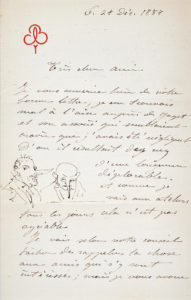 24 Déc. 1888
Très cher ami.
Je vous remercie bien de votre
bonne lettre, je me trouvais
mal à l'aise auprès de
et son associé qui semblaient
croire que j'avais été négligent
D'où il résultait
d'une
déplorable.
et comme je
vais aux ateliers
tous les jours cela n'est pas
agréable
Je vais selon votre conseil
tâcher de rappeler la chose
aux amis qui s'y sont
intéressés; mais je vous avoue